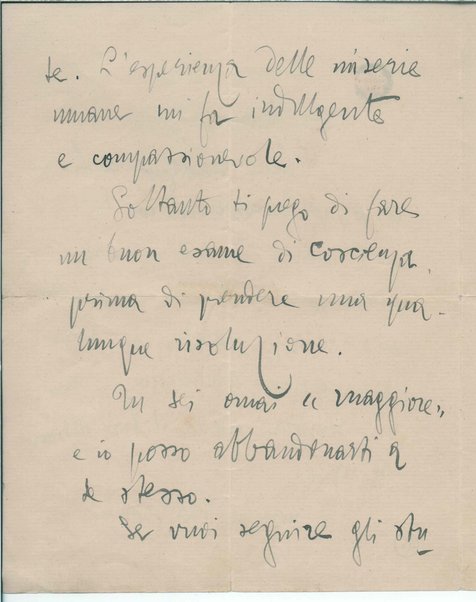 te. L'esperienza delle miserie
umane mi fa indulgente
e compassionevole.
Soltanto ti prego di fare
un buon esame di coscienza
prima di prendere una qua-
lunque risoluzione.
Tu sei omai "maggiore"
e io posso abbandonarti a
te stesso.
Se vuoi seguire gli stu